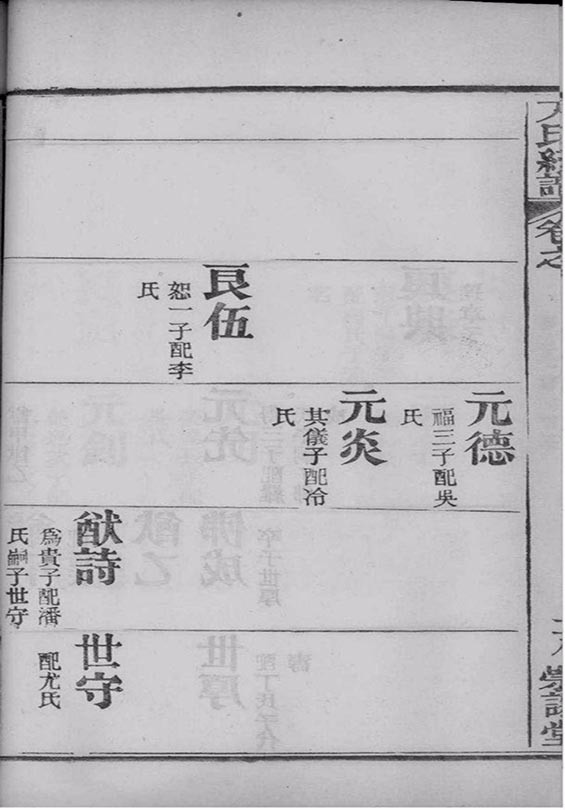 氏統譜
卷之
堂
艮伍
恕一子配李
氏
元德
福三子配吳
氏
元炎
其儀子配冷
氏
猷詩
爲貴子配潘
氏嗣子世守
世守
配尤氏